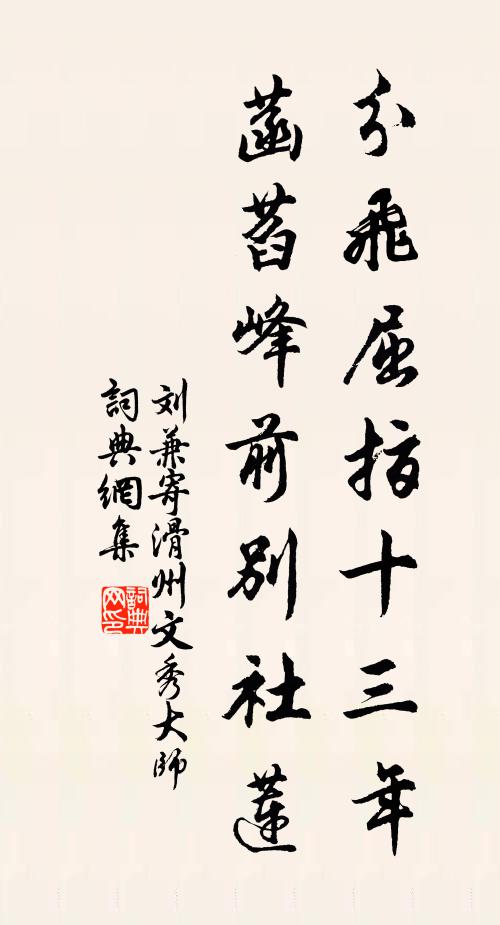 分飛屈指十三年
菡萏峰前別社蓮
刘兼寄滑州文秀大師
詞典網集
詞典
网印